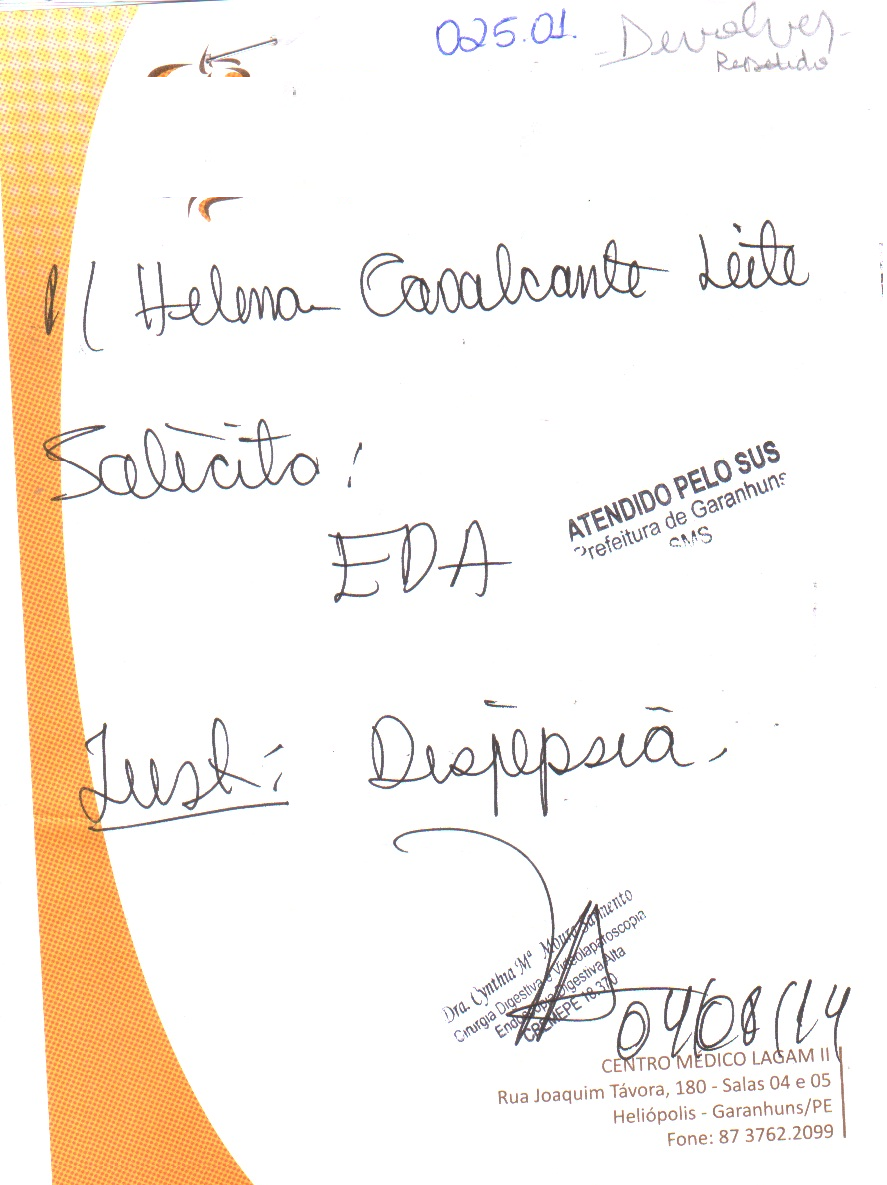 025.01. -Devolver-
Repetido
P/ Helena Cavalcante Leite
Solicito:
EDA
ATENDIDO PELO SUS
Prefeitura de Garanhuns
SMS
Just: Dispepsia.
Dra. Cynthia Mª Moura Sarmento
Cirurgia Digestiva e Videolaparoscopia
Endoscopia Digestiva Alta
CREMEPE 18.370
04/08/14
CENTRO MÉDICO LAGAM II
Rua Joaquim Távora, 180 - Salas 04 e 05
Heliópolis - Garanhuns/PE
Fone: 87 3762.2099